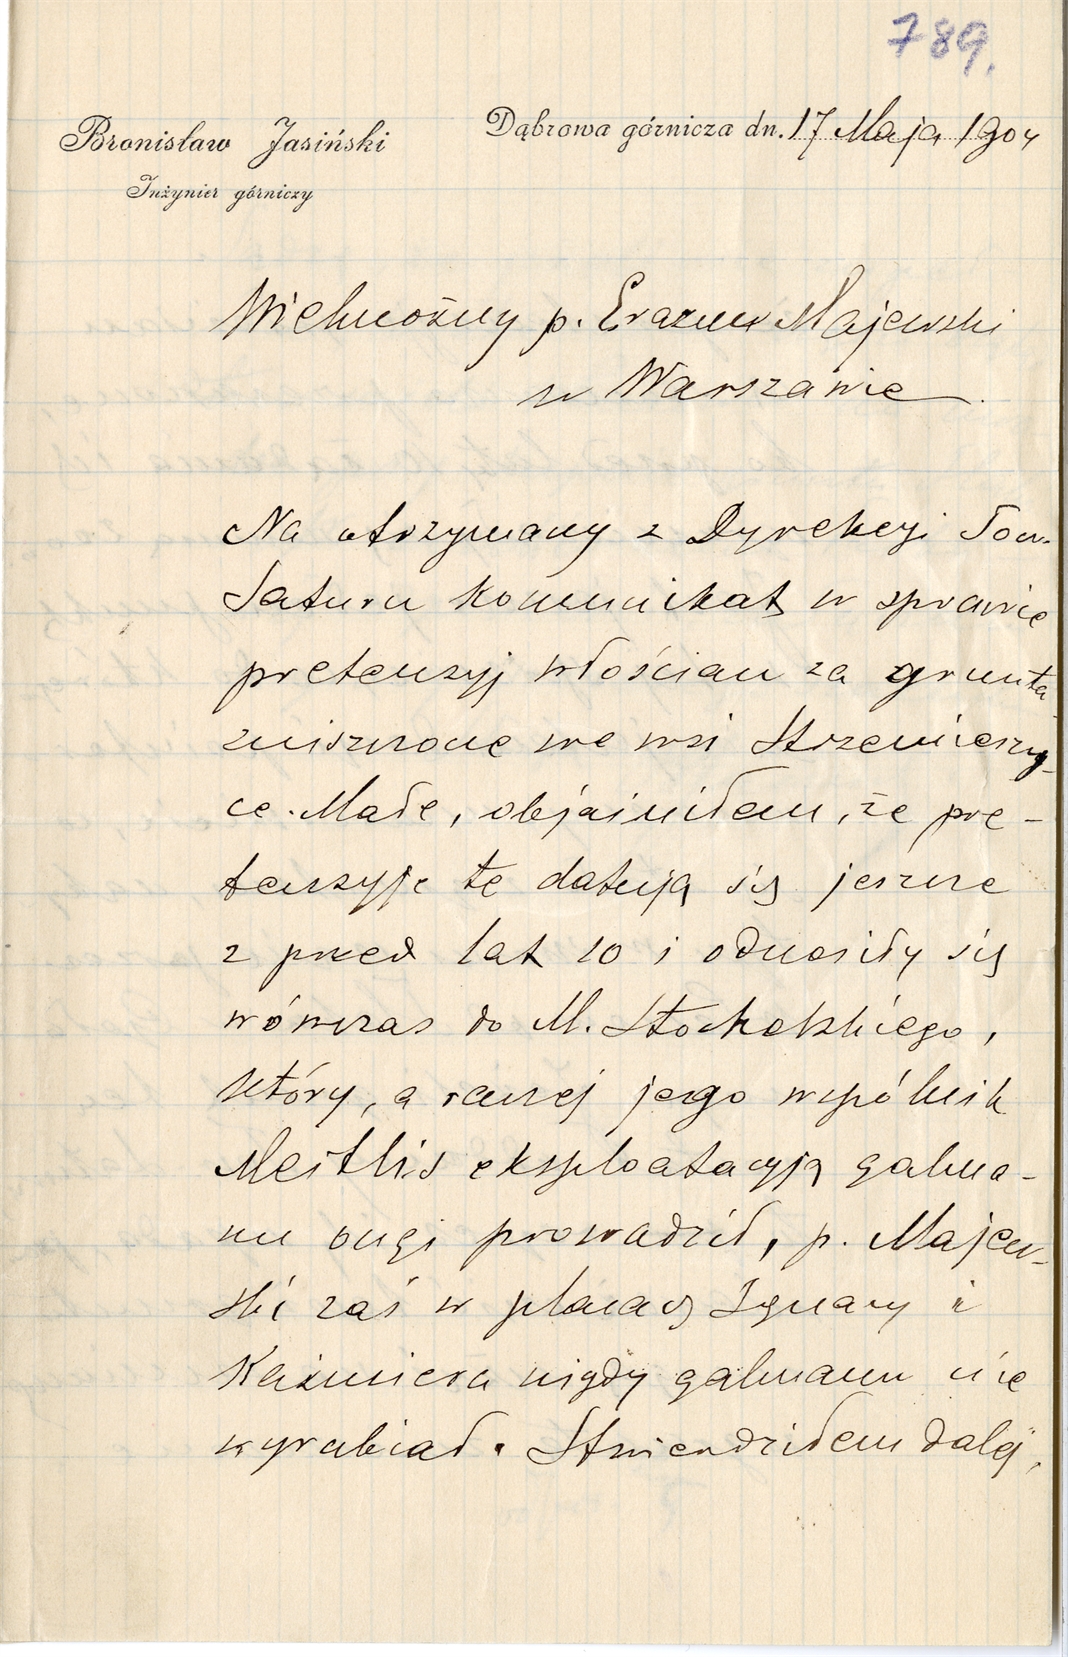 789.
Bronisław Jasiński
Inżynier górniczy
Dąbrowa górnicza dn. 17 Maja 1904
Wielmożny p. Erazm Majewski
w Warszawie
Na otrzymany z Dyrekcyi Tow.
Saturn komunikat w sprawie
pretensyj włościan za grunta
zniszczone we wsi Strzemieszy-
ce Małe, objaśniłem, że pre-
tensyje te datują się jeszcze
z przed lat 10 i odnosiły się
wówczas do M. Stockelskiego,
który, a raczej jego wspólnik
Meitlis eksploatacyją galma-
nu ongi prowadził, p. Majew-
ski zaś w placach Ignacy i
Kazimiera nigdy galmanu nie
wyrabiał. Stwierdziłem dalej,